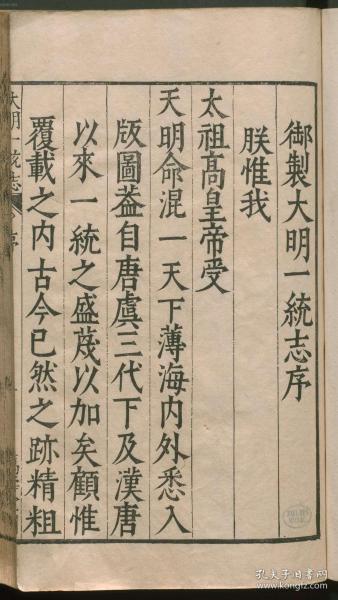 御製大明一統志序
朕惟我
太祖高皇帝受
天明命混一天下薄海内外悉入
版圖葢自唐虞三代下及漢唐
以來一統之盛蔑以加矣顧惟
覆載之内古今已然之跡精粗
大明一統志
序
孔夫子旧书网